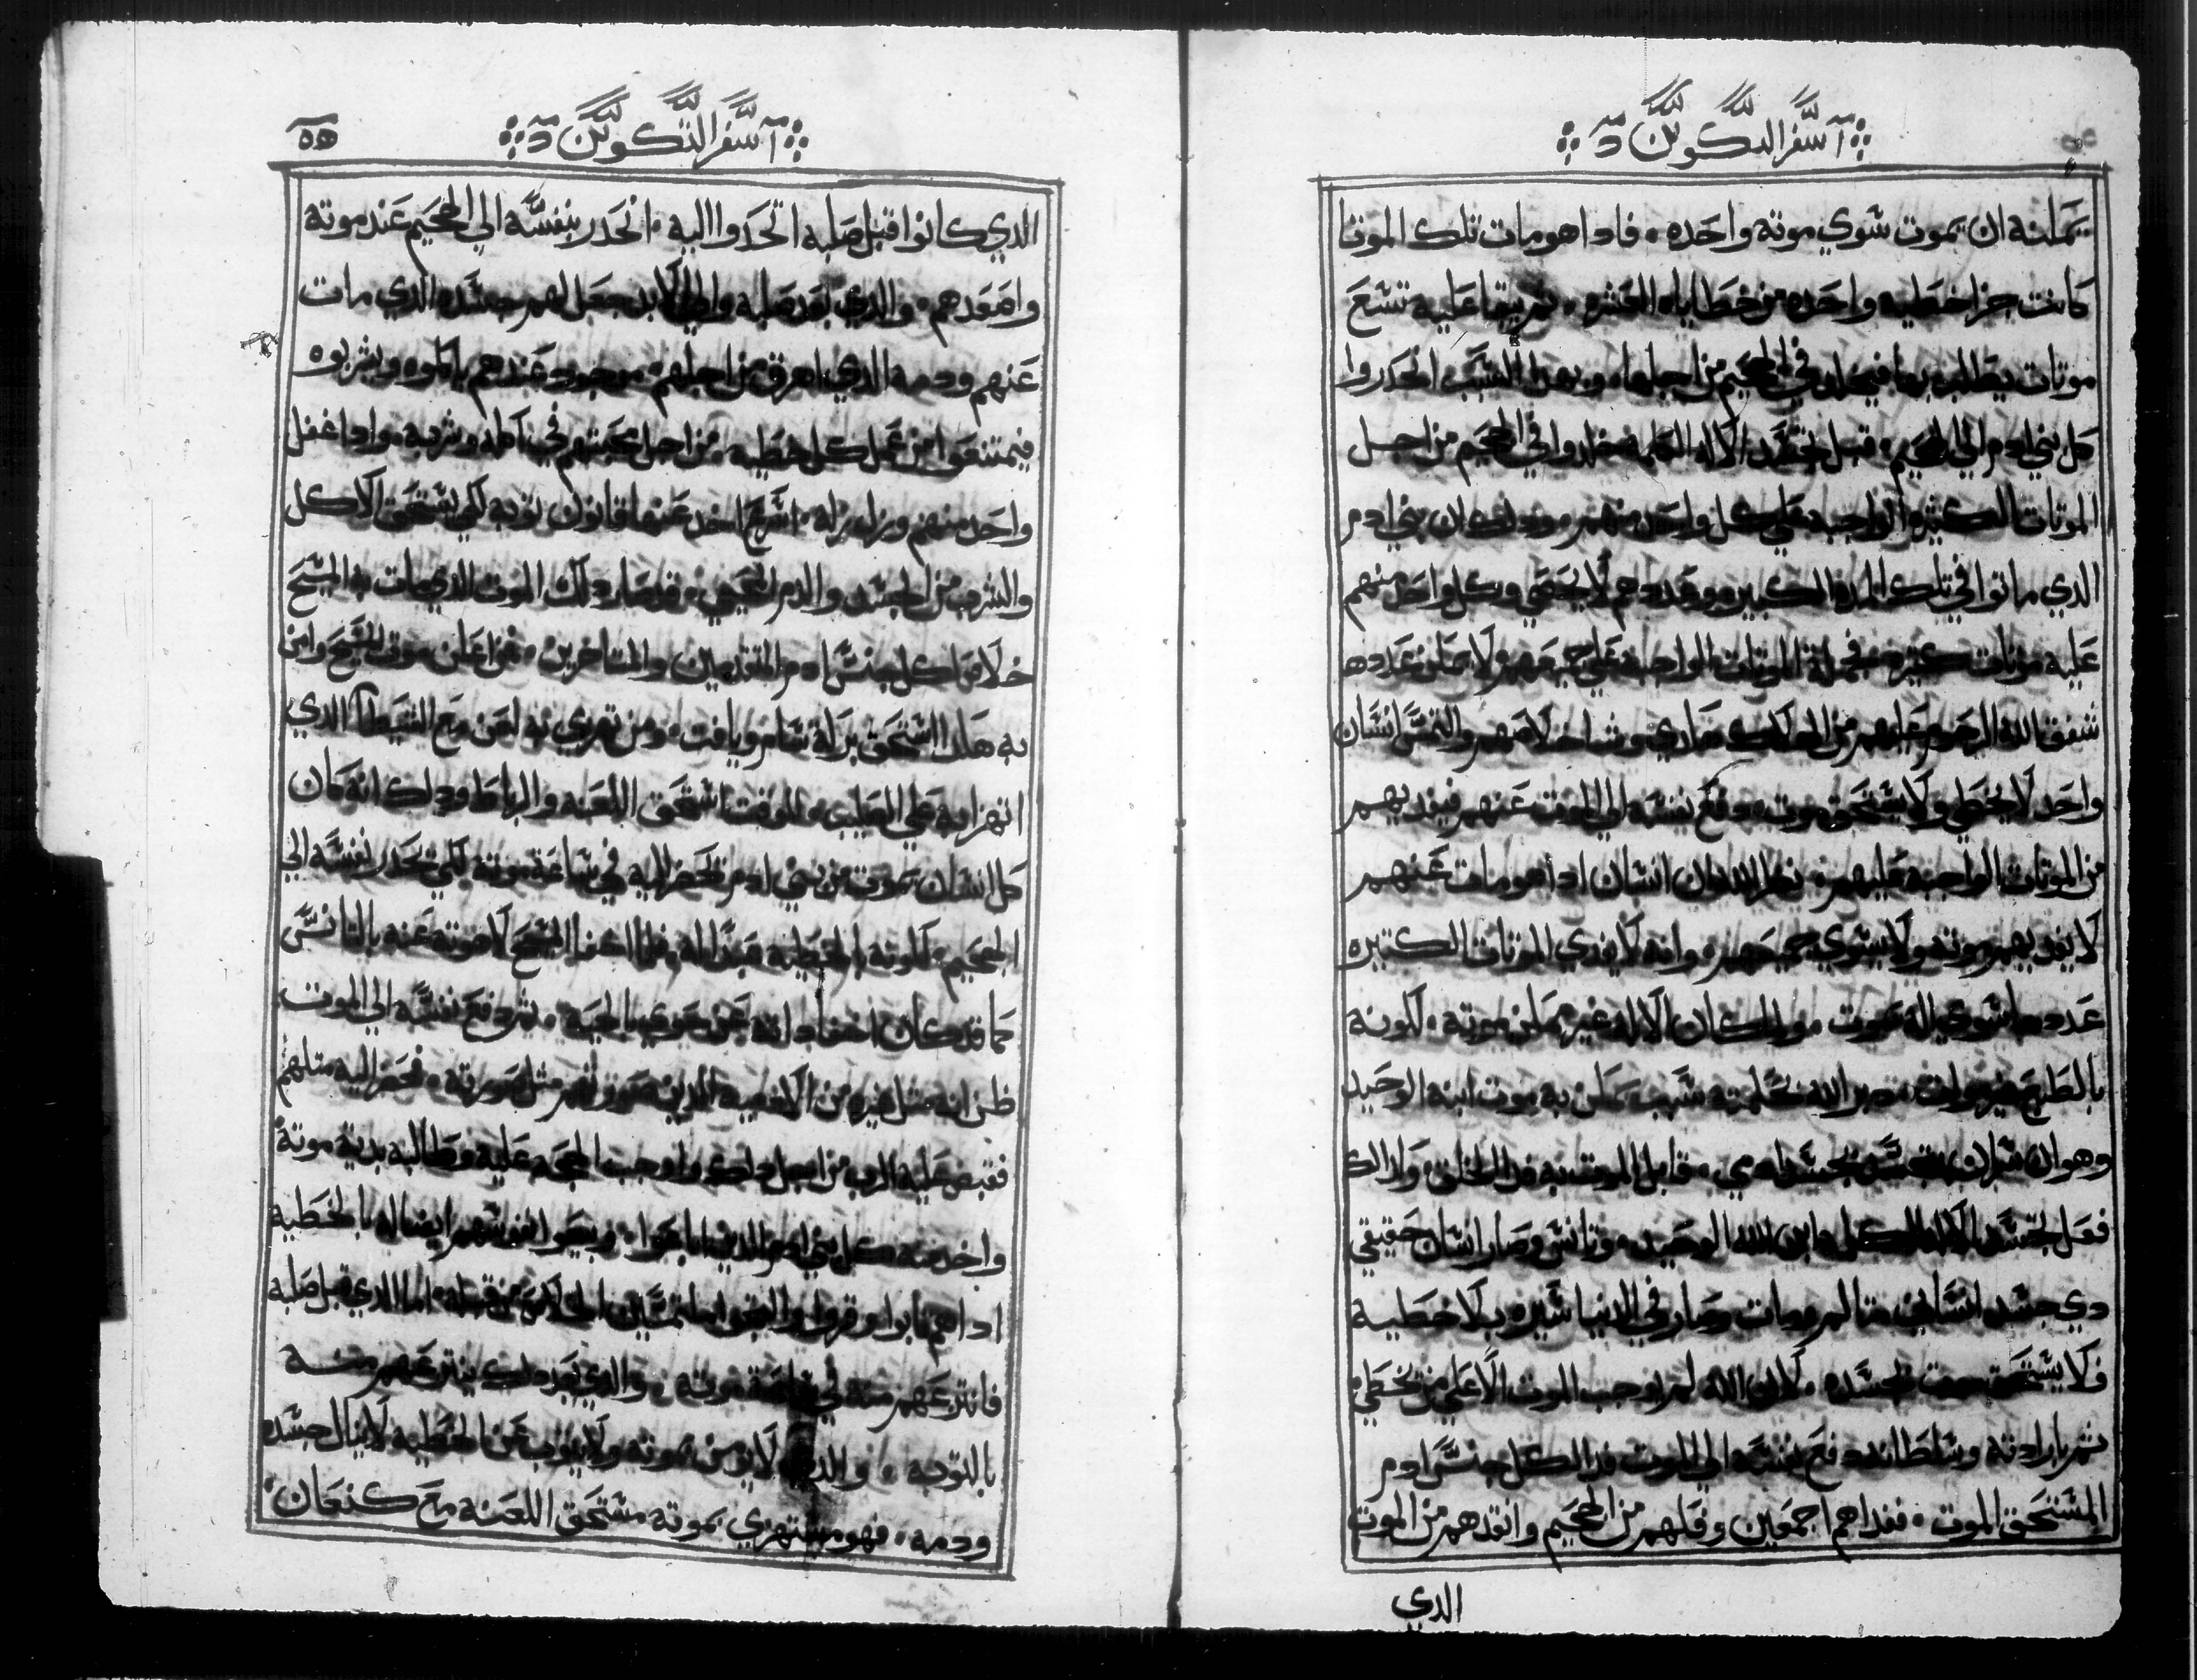 سفر التكوين
يمكنه ان يموت سوي موته واحده فاداهو مات تلك الموتا
كانت جزا خطيه واحده من خطاياه العشره ثم يبقا عليه تسع
موتات يطلب بها فيخلد في الجحيم من اجلها وبهدا السبب انحدروا
كل بني ادم الي الجحيم قبل تجسد الاله الكلمه خلدوا في الجحيم من اجل
الموتات الكثيره الواجبه علي كل واحد منهم ودلك ان بني ادم
الدي ماتوا في تلك المده الكبيره وعددهم لا يحصي وكل واحد منهم
عليه موتات كثيره فجملة الموتات الواجبه علي جميعهم لا يمكن عددها
شفق الله الرحوم عليهم من الهلاك وشا خلاصهم والتمس انسان
واحد لا يخطي ولا يستحق موت دفع نفسه الي الموت عنهم فيفديهم
من الموتات الواجبه عليهم نظر الله ان انسان اداهو مات عنهم
لا يفديهم موته ولا يسوي جميعهم وانه لا يفدي الموتات الكتيره
عددها سوي اله يموت ولما كان الاله غير ممكن موته لكونه
بالطبع غير موات دبر الاله بحكمته سبب يمكن به موت ابنه الوحيد
وهو ان يتجسد بجسد ادمي قابل الموت به فدا الخلق ولدالك
فعل تجسد الاله الكلمه ابن الله الوحيد وتانس وصار انسان حقيقي
دي جسد انساني متالم ومات وصار في الدنيا سيره بلا خطيه
فلا يستحق موت بجسده لان الله لم يوجب الموت الا علي من يخطي
ثم بارادته وسلطانه دفع نفسه الي الموت فدا لكل جنس ادم
المستحق الموت ففداهم اجمعين وفكهم من الجحيم وانقدهم من الموت
الدي
سفر التكوين
٥٥
الدي كانوا قبل صلبه اتحدروا اليه انحدر بنفسه الي الجحيم عند موته
واصعدهم والدي بعد صلبه والي الابد جعل لهم جسده الدي مات
عنهم ودمه الدي اهرق من اجلهم موجود عندهم ياكلوه ويشربوه
فيمتنعوا من عمل كل خطيه من اجل محبتهم في اكله وشربه وادا غفل
واحد منهم وزل بزله اسرع اخد عنها قانون توبه لكي يستحق الاكل
والشرب من الجسد والدم المحيي فصار دلك الموت الدي مات به المسيح
خلاص لكل جنس ادم المتقدمين والمتاخرين فمن اعلن موت المسيح وامن
به هكدا استحق بركة سام ويافت ومن تهزي به لعن مع الشيطان الدي
اتهزا به علي الصليب وللوقت استحق اللعنه والرباط ودلك انه كان
كل انسان يموت من بني ادم يحضر اليه في ساعة موته لكي يحدر نفسه الي
الجحيم لكونه بالخطيه عبدا له فلما اخفا المسيح لاهوته عنه بالتانس
كما قد كان اخفا داته عن حوي بالحيه ثم دفع نفسه الي الموت
ظن انه مثل غيره من الانبيا الدين هم مثل صورته فحضر اليه متلهم
فقبض عليه الرب من اجل دلك واوجب الحجه عليه وطالبه بدية موته
واخد منه كل بني ادم الدين باعوا ويبيعوا نفوسهم ايضا له بالخطيه
اداهم تابوا وقروا ملتمسين الخلاص من قبله اما الدي قبل صلبه
فانتزعهم منه في ساعة موته والدي بعد دلك ينتزعهم منه
بالتوبه والدي لا يومن بموته ولا يتوب عن الخطيه لا ينال جسده
ودمه فهو مستهزي بموته مستحق اللعنه مع كنعان